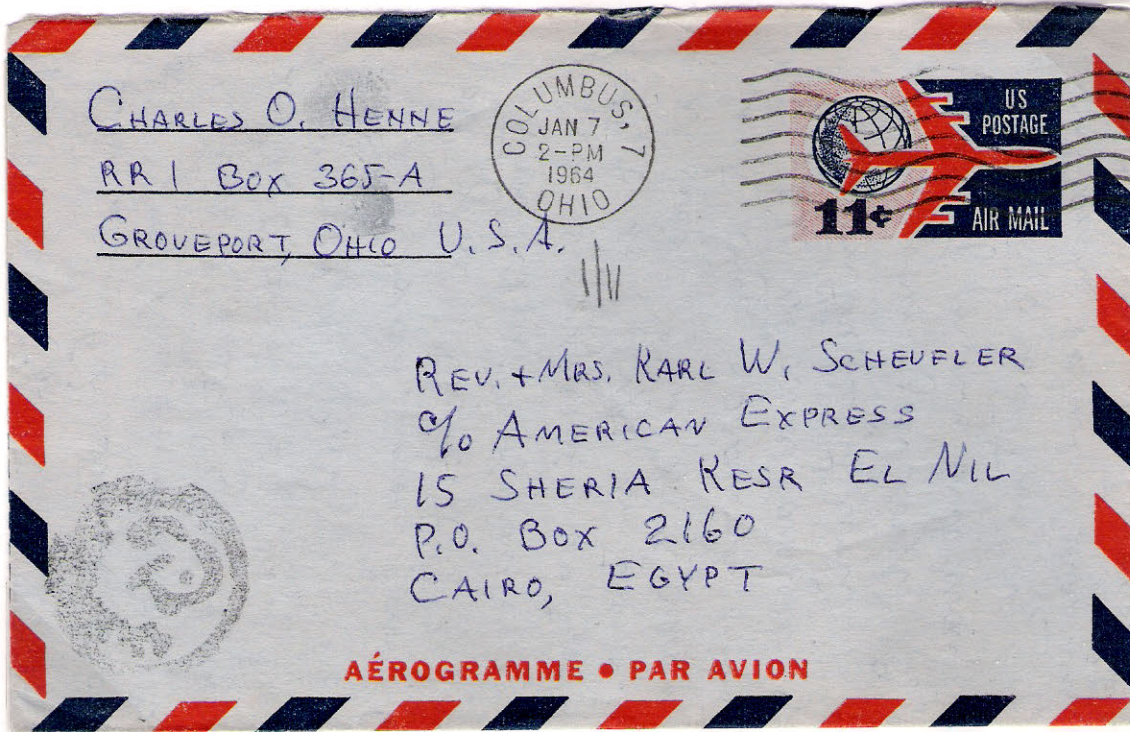 CHARLES O. HENNE
RR 1 BOX 365-A
GROVEPORT, OHIO U.S.A.
COLUMBUS, 7
JAN 7
2-PM
1964
OHIO
US
POSTAGE
11¢
AIR MAIL
1/11
REV. + MRS. KARL W. SCHEUELER
c/o AMERICAN EXPRESS
15 SHERIA KESR EL NIL
P.O. BOX 2160
CAIRO, EGYPT
AÉROGRAMME • PAR AVION